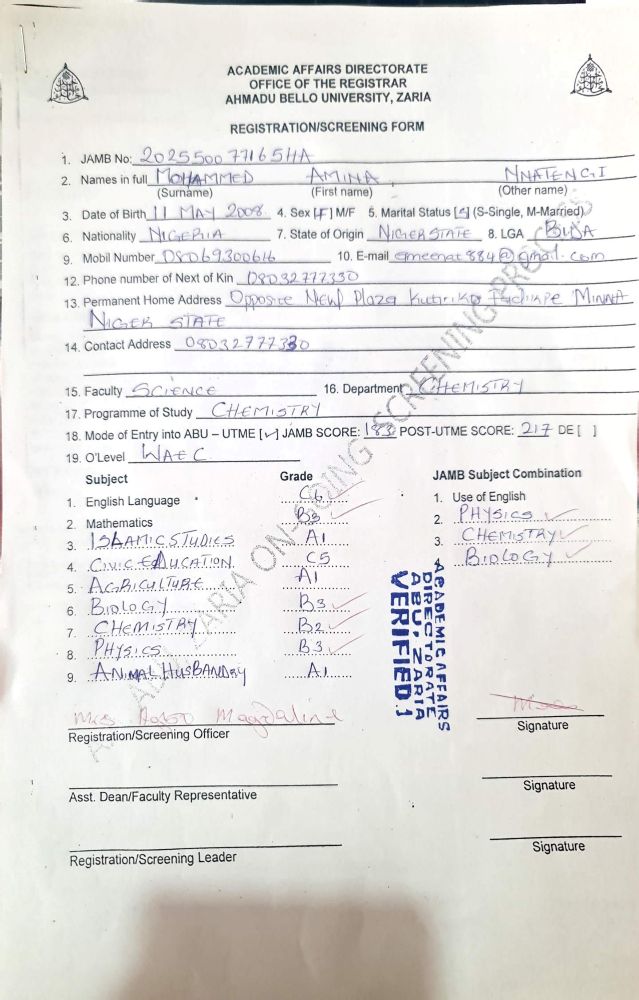 ACADEMIC AFFAIRS DIRECTORATE
OFFICE OF THE REGISTRAR
AHMADU BELLO UNIVERSITY, ZARIA
REGISTRATION/SCREENING FORM
1. JAMB No: 202550077165HA
2. Names in full MOHAMMED AMINA NNATENGI
(Surname) (First name) (Other name)
3. Date of Birth 11 MAY 2008 4. Sex [F] M/F 5. Marital Status [S] (S-Single, M-Married)
6. Nationality NIGERIA 7. State of Origin NIGER STATE 8. LGA BIDA
9. Mobil Number 08069300616 10. E-mail ameenat884@gmail.com
12. Phone number of Next of Kin 08032777330
13. Permanent Home Address Opposite New Plaza Kutirko MINNA
NIGER STATE
14. Contact Address 08032777330
15. Faculty SCIENCE 16. Department CHEMISTRY
17. Programme of Study CHEMISTRY
18. Mode of Entry into ABU – UTME [✓] JAMB SCORE: 183 POST-UTME SCORE: 217 DE [ ]
19. O'Level WAEC
Subject Grade JAMB Subject Combination
1. English Language C6 1. Use of English
2. Mathematics B3 2. PHYSICS
3. ISLAMIC STUDIES A1 3. CHEMISTRY
4. CIVIC EDUCATION C5 4. BIOLOGY
5. AGRICULTURE A1
6. BIOLOGY B3
7. CHEMISTRY B2
8. PHYSICS B3
9. ANIMAL HUSBANDRY A1
ACADEMIC AFFAIRS
DIRECTORATE
ABU, ZARIA
VERIFIED.1
Mrs Magdaline
Registration/Screening Officer Signature
Asst. Dean/Faculty Representative Signature
Registration/Screening Leader Signature
ZARIA ON-GOING SCREENING